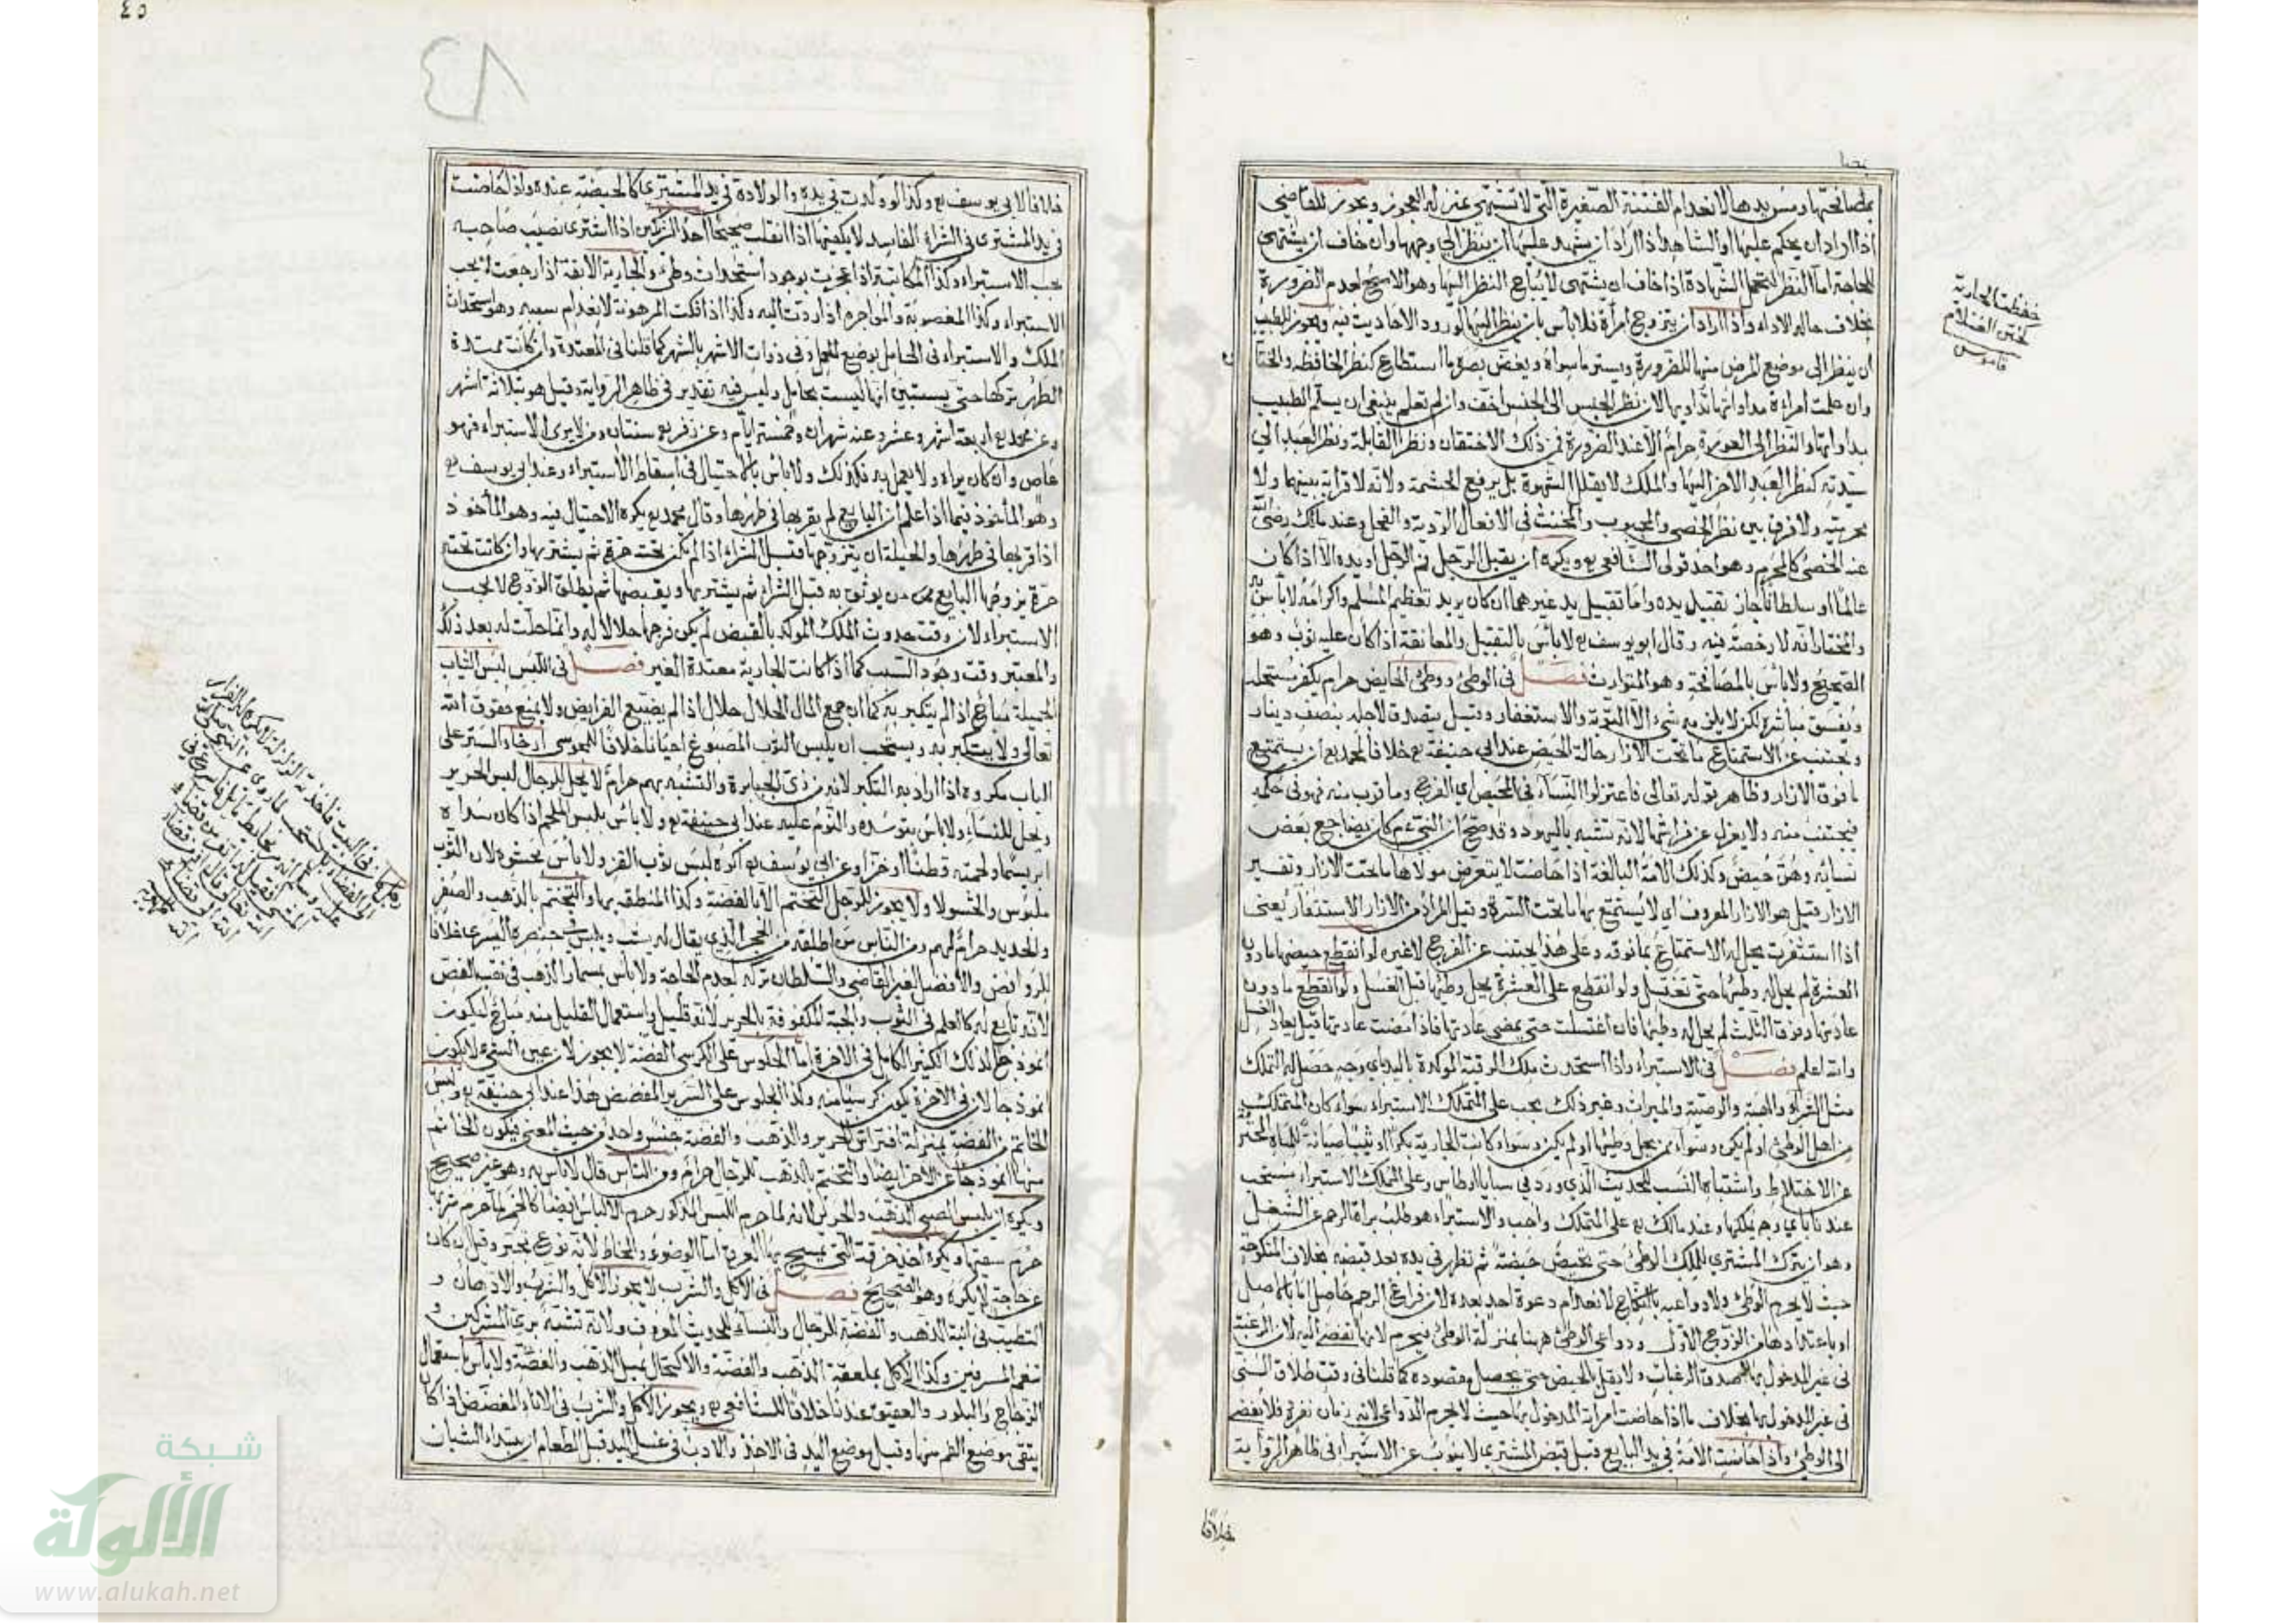 بمصافحتها ومس يدها لانعدام الفتنة الصغيرة التي لا تشتهى بمنزلة العجوز ويجوز للقاضي
اذا اراد ان يحكم عليها والشاهد اذا اراد ان يشهد عليها ان ينظر الى وجهها وان خاف ان يشتهى
للحاجة اما النظر لتحمل الشهادة اذا خاف ان يشتهى لا يباح النظر اليها وهو الاصح لعدم الضرورة
بخلاف حالة الاداء واذا اراد ان يتزوج امرأة فلا بأس بان ينظر اليها لورود الاحاديث فيه ويجوز للطبيب
ان ينظر الى موضع المرض منها للضرورة ويستر ما سواه ويغض بصره ما استطاع كنظر الخافضة والختان
وان علمت امراءة مداواتها تداويها لان نظر الجنس الى الجنس اخف وان لم تعلم ينبغي ان يسلم الطبيب
بداواتها والنظر الى العورة حرام الا عند الضرورة فمن ذلك الاحتقان ونظر القابلة ونظر العبد الى
سيدته كنظر العبد الآخر اليها والملك لا يقلل الشهوة بل يرفع الحشمة ولانه لا قرابة بينهما ولا
محرمية ولا فرق بين نظر الخصي والمجبوب والمخنث في الافعال الردية والفحل وعند مالك رضى الله
عنه الخصى كالمحرم وهو احد قولى الشافعي رح ويكره ان يقبل الرجل فم الرجل او يده الا اذا كان
عالما او سلطانا جاز تقبيل يده واما تقبيل يد غيرهما ان كان يريد تعظيم المسلم واكرامه لا بأس به
والمختار انه لا رخصة فيه وقال ابو يوسف رح لا بأس بالتقبيل والمعانقة اذا كان عليه ثوب وهو
الصحيح ولا بأس بالمصافحة وهو المتوارث فصل في الوطئ ووطئ الحايض حرام يكفر مستحله
ويفسق مباشره لكن لا يلزمه شئ الا التوبة والاستغفار وقيل يتصدق لاجله بنصف دينار
ويجتنب عن الاستمتاع ما تحت الازار حالة الحيض عند ابي حنيفة رح خلافا لمحمد رح ان يستمتع
ما فوق الازار وظاهر قوله تعالى فاعتزلوا النساء في المحيض اي الفرج وما قرب منه فهو في حكمه
فيجتنب منه ولا يعزل عن فراشها لانه تشبه باليهود وقد صح ان النبي عم كان يضاجع بعض
نسائه وهن حيض وكذلك الامة البالغة اذا حاضت لا يتعرض مولاها ما تحت الازار وتفسير
الازار قيل هو الازار المعروف اي لا يستمتع بها ما تحت السرة وقيل المراد من الازار الاستثفار يعنى
اذا استثفرت يحل له الاستمتاع بما فوقه وعلى هذا يجتنب عن الفرج لا غيره لو انقطع حيضها ما دون
العشرة لم يحل له وطئها حتى تغتسل ولو انقطع على العشرة يحل وطئها قبل الغسل ولو انقطع ما دون
عادتها وفوق الثلث لم يحل له وطئها فان اغتسلت حتى يمضى عادتها فاذا مضت عادتها قيل يعاد الغسل
والله اعلم فصل في الاستبراء واذا استحدث ملك الرقبة الموكدة باليد باي وجه حصل له التملك
مثل الشراء والهبة والوصية والميراث وغير ذلك يجب على المتملك الاستبراء سواء كان المتملك
من اهل الوطئ او لم يكن وسواء ممن يحل وطئها او لم يكن وسواء كانت الجارية بكرا او ثيبا صيانة للمياه المحترمة
عن الاختلاط واشتباه النسب للحديث الذي ورد في سبايا اوطاس وعلى المملك الاستبراء مستحب
عندنا وعند مالك رح على المتملك واجب والاستبراء هو طلب براءة الرحم عن الشغل
وهو ان يترك المشتري للملك الوطئ حتى تحيض حيضة ثم تطهر في يده بعد قبضه بخلاف المنكوحة
حيث لا يحرم الوطئ ولا دواعيه بالنكاح لانعدام دعوة احد بعده لان فراغ الرحم حاصل اما بالاصل
او باعتدادها من الزوج الاول ودواعي الوطئ ههنا بمنزلة الوطئ فيحرم لانها تفضي اليه لان الرغبة
في غير المدخول بها اصدق الرغبات ولا يقل بالحيض حتى يحصل مقصوده كما قلنا في وقت طلاق السني
في غير المدخول بها بخلاف ما اذا حاضت امراته المدخول بها حيث لا يحرم الدواعي لانه زمان نفرة فلا يفضى
الى الوطئ واذا حاضت الامة في يد البايع قبل قبض المشتري لا ينوب عن الاستبراء في ظاهر الرواية
خلافا
خفضت الجارية
كختن الغلام
قاموس
٤٥
13
خلافا لابي يوسف رح وكذا لو ولدت في يده والولادة في يد المشتري كالحيضة عنده واذا حاضت
في يد المشتري في الشراء الفاسد لا يكفيها اذا انقلب صحيحا احد الشريكين اذا اشترى نصيب صاحبه
يجب الاستبراء وكذا المكاتبة اذا عجزت لوجود استحداث وطئ والجارية الآبقة اذا رجعت لا يجب
الاستبراء وكذا المغصوبة والمواجرة اذا ردت اليه وكذا اذا فكت المرهونة لانعدام سببه وهو استحداث
الملك والاستبراء في الحامل بوضع الحمل وفي ذوات الاشهر بالشهر كما قلنا في المعتدة وان كانت ممتدة
الطهر تركها حتى يستبين انها ليست بحامل وليس فيه تقدير في ظاهر الرواية وقيل هو بثلاثة اشهر
وعن محمد رح اربعة اشهر وعشر وعنه شهران وخمسة ايام وعن زفر رح سنتان ومن لا يرى الاستبراء فهو
عاص وان كان يراه ولا يعمل به فكذلك ولا بأس بالاحتيال في اسقاط الاستبراء وعند ابي يوسف رح
وهو المأخوذ فيما اذا علم ان البايع لم يقربها في طهرها وقال محمد رح يكره الاحتيال فيه وهو المأخوذ
اذا قربها في طهرها والحيلة ان يتزوجها قبل الشراء اذا لم تكن تحته حرة ثم يشتريها وان كانت تحته
حرة يزوجها البايع ممن يوثق به قبل الشراء ثم يشتريها ويقبضها ثم يطلق الزوج لا يجب
الاستبراء لان وقت حدوث الملك الموكد بالقبض لم يكن فرجها حلالا له وانما حلت له بعد ذلك
والمعتبر وقت وجود السبب كما اذا كانت الجارية معتدة الغير فصل في اللبس لبس الثياب
الجميلة مباح اذا لم يتكبر به كما ان جمع المال الحلال حلال اذا لم يضيع الفرايض ولا يمنع حقوق الله
تعالى ولا يتكبر به ويستحب ان يلبس الثوب المصبوغ احيانا خلافا للمجوسي ارخاء الستر على
الباب مكروه اذا اراد به التكبر لانه من زي الجبابرة والتشبه بهم حرام لا يحل للرجال لبس الحرير
ويحل للنساء ولا بأس بتوسده والنوم عليه عند ابي حنيفة رح ولا بأس بلبس الملحم اذا كان سداه
ابريسما ولحمته قطنا او خزا وعن ابي يوسف رح اكره لبس ثوب القز ولا بأس بحشوه لان الثوب
ملبوس والحشو لا ولا يجوز للرجل التختم الا بالفضة وكذا المنطقة بها والتختم بالذهب والصفر
والحديد حرام لهم ومن الناس من اطلقه من الحجر الذي يقال له يشب ويلبس في خنصره اليسرى خلافا
للروافض والافضل لغير القاضي والسلطان تركه لعدم الحاجة ولا بأس بمسمار الذهب في ثقب الفص
لانه تابع له كالعلم في الثوب والجبة المكفوفة بالحرير لانه قليل واستعمال القليل منه مباح ليكون
انموذجا لذلك الكثير الكامل في الآخرة اما الجلوس على الكرسي الفضة لا يجوز لان عين الشيء لا يكون
انموذجا لان في الآخرة يكون كرسيا منه وكذا الجلوس على السرير المفضض هذا عند ابي حنيفة رح ولبس
الخاتم من الفضة بمنزلة افتراش الحرير والذهب والفضة جنس واحد من حيث المعنى فيكون الخاتم
منها انموذجا عن الآخر ايضا والتختم بالذهب للرجال حرام ومن الناس قال لا بأس به وهو غير صحيح
ويكره ان يلبس الصبي الذهب والحرير لانه لما حرم اللبس للذكور حرم الالباس ايضا كالخمر لما حرم شربها
حرم سقيها ويكره اخذ خرقة التي يمسح بها العرق اما الوضوء والمخاط لانه نوع تجبر وقيل ان كان
عن حاجة لا يكره وهو الصحيح فصل في الاكل والشرب لا يجوز الاكل والشرب والادهان و
التطيب في آنية الذهب والفضة للرجال والنساء للحديث المعروف ولانه تشبه بزي المشركين و
تنعم المسرفين وكذا الاكل بملعقة الذهب والفضة والاكتحال بميل الذهب والفضة ولا بأس باستعمال
الزجاج والبلور والعقيق عندنا خلافا للشافعي رح ويجوز الاكل والشرب في الاناء المفضض اذا كان
يتقى موضع الفم منها وقيل موضع اليد في الاخذ والادب في غسل اليد قبل الطعام ان يبتداء الشبان